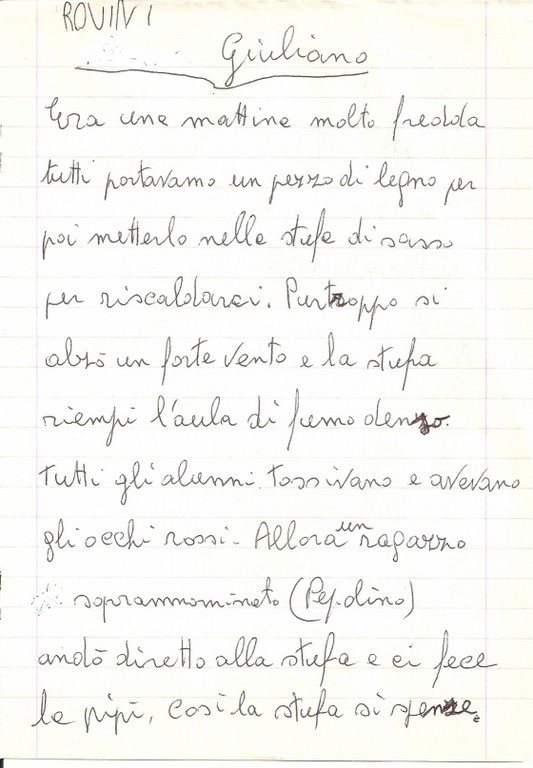 ROVINI
Giuliano
Era una mattina molto fredda
tutti portavamo un pezzo di legno per
poi metterlo nella stufa di sasso
per riscaldarci. Purtroppo si
alzò un forte vento e la stufa
riempì l'aula di fumo denso.
Tutti gli alunni tossivano e avevano
gli occhi rossi. Allora un ragazzo
soprannominato (Pepolino)
andò diretto alla stufa e ci fece
la pipì, così la stufa si spense.